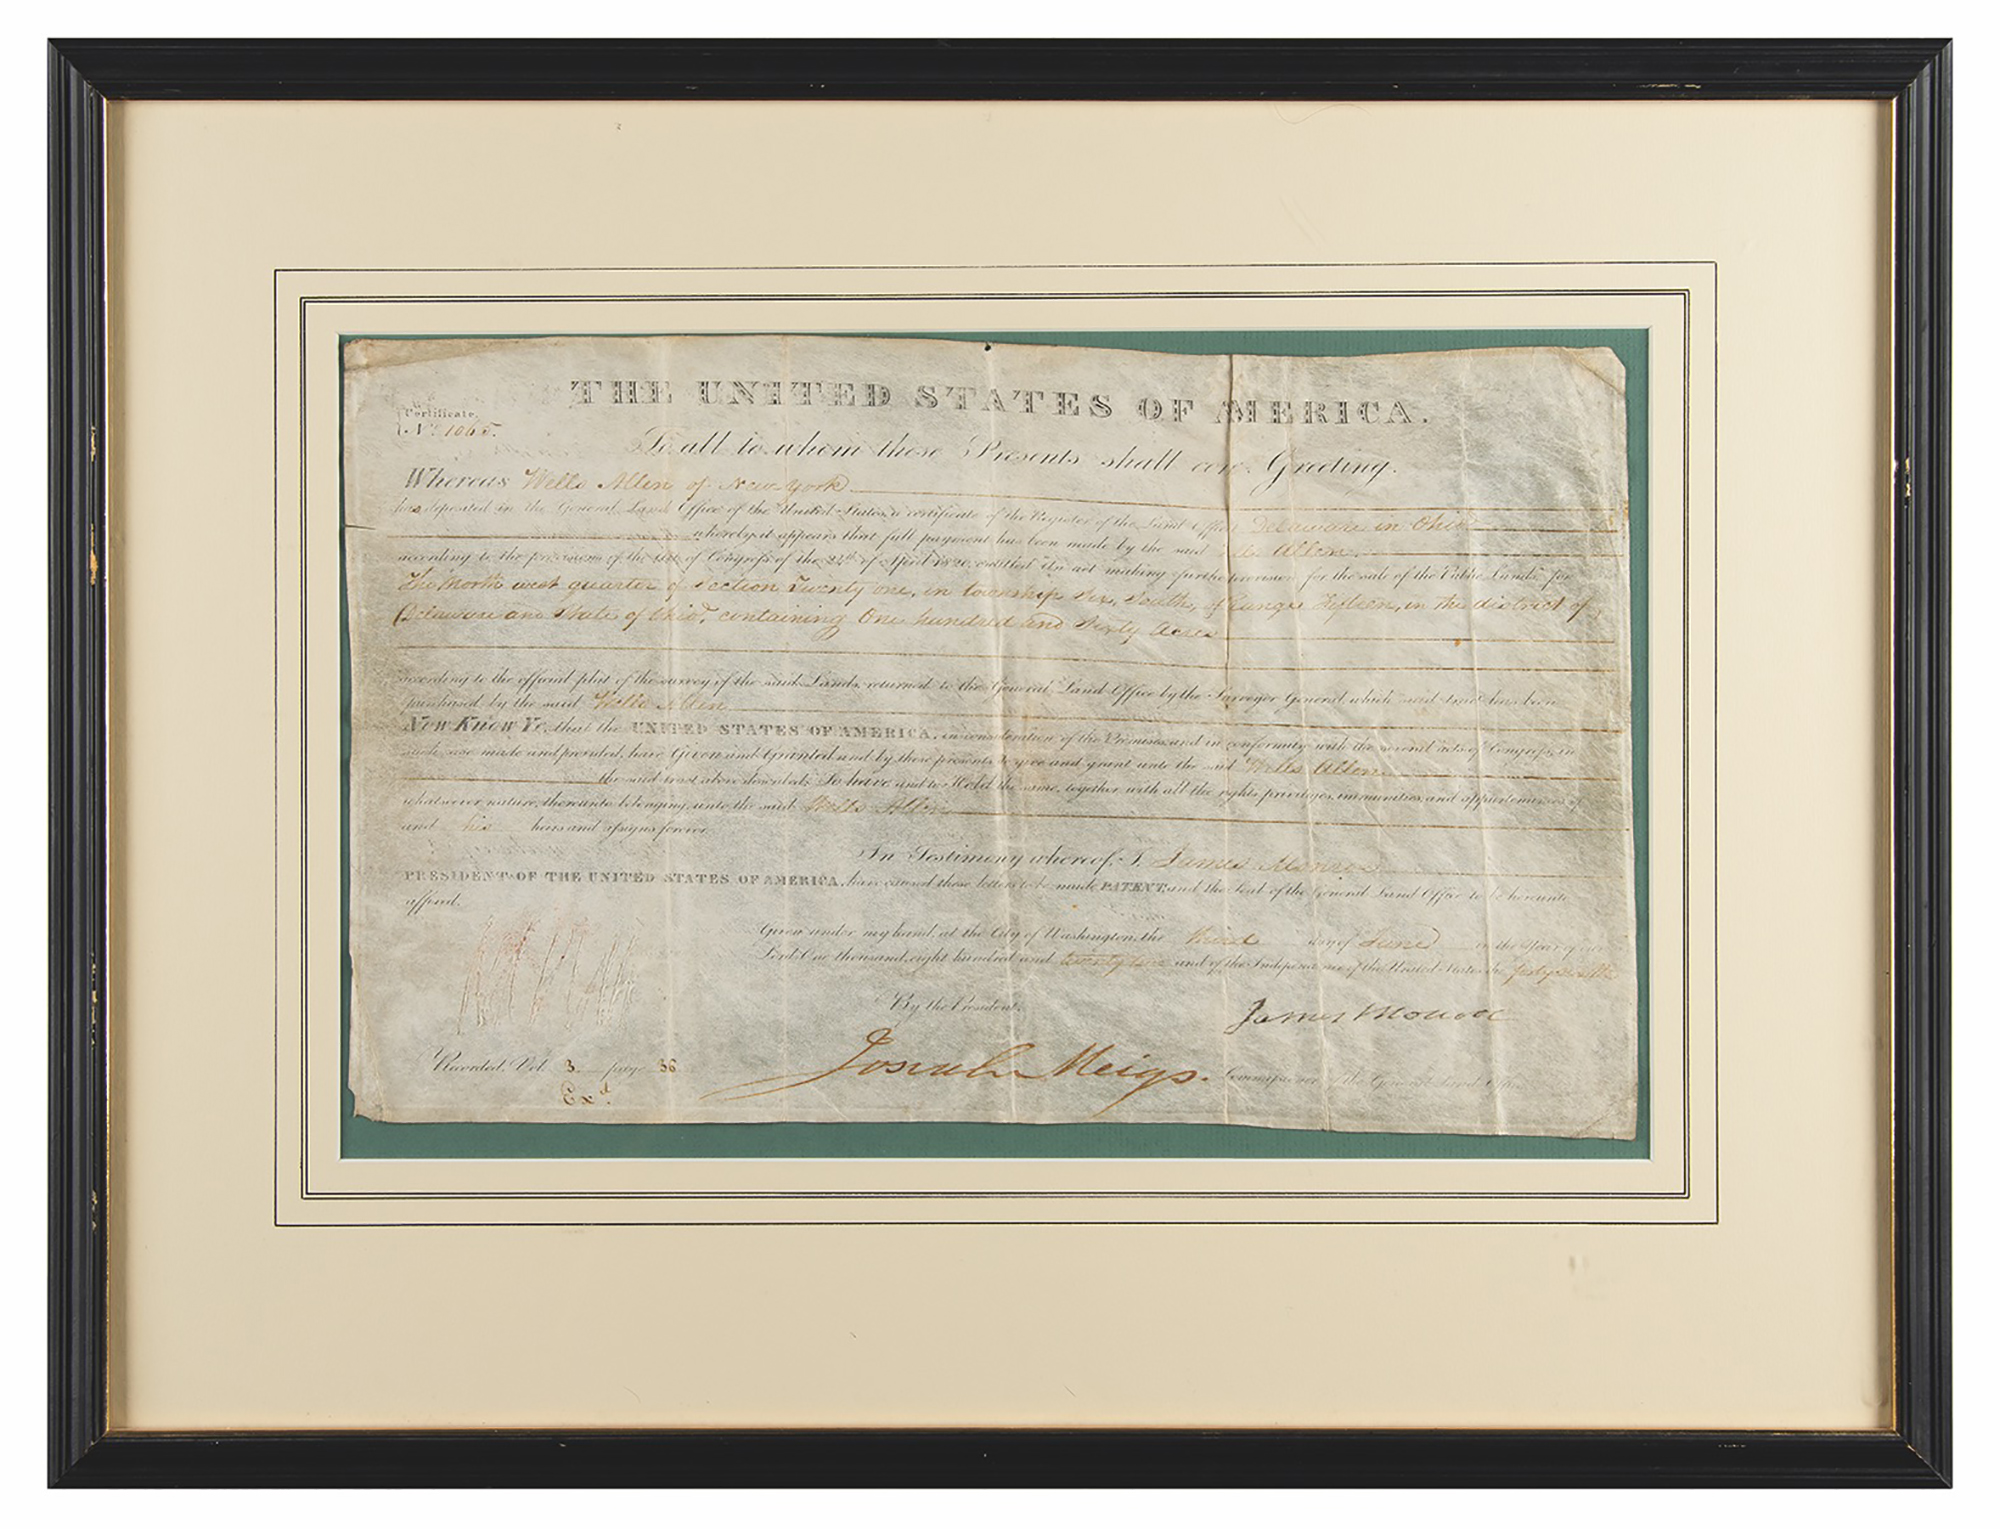 THE UNITED STATES OF AMERICA.
Certificate
No. 1065.
To all to whom these Presents shall come, Greeting.
Whereas Wells Allen of New York
has deposited in the General Land Office of the United States, a certificate of the Register of the Land Office Delaware in Ohio
whereby it appears that full payment has been made by the said Allen
according to the provisions of the Act of Congress of the 24th of April 1820, entitled An act making further provision for the sale of the Public Lands, for
The North west quarter of Section Twenty one, in township Six, South, of Range Fifteen, in the district of
Delaware and State of Ohio, containing One hundred and Sixty Acres
according to the official plat of the survey of the said Lands, returned to the General Land Office by the Surveyor General, which said tract has been
purchased by the said Wells Allen
Now Know Ye, that the UNITED STATES OF AMERICA, in consideration of the Premises, and in conformity with the several acts of Congress, in
such case made and provided, have Given and Granted, and by these presents, do give and grant unto the said Wells Allen
the said tract above described: To have and to Hold the same, together with all the rights, privileges, immunities, and appurtenances of
whatsoever nature, thereunto belonging, unto the said Wells Allen
and his heirs and assigns forever.
In Testimony whereof, I, James Monroe
PRESIDENT OF THE UNITED STATES OF AMERICA, have caused these letters to be made PATENT, and the Seal of the General Land Office to be hereunto
affixed.
Given under my hand, at the City of Washington, the third day of June in the Year of our
Lord One thousand, eight hundred and twenty two and of the Independence of the United States the forty sixth
By the President.
James Monroe
Josiah Meigs. Commissioner of the General Land Office
Recorded, Vol. 3. page 36
Exd.